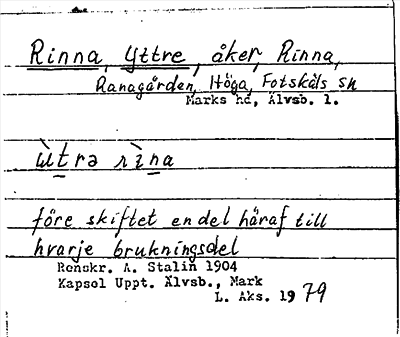 Rinna, Yttre, åker, Rinna,
Ranagården, Höga, Fotskäls sn
Marks hd, Älvsb. l.
ùtrə rìna
före skiftet en del häraf till
hvarje brukningsdel
Renskr. A. Stalin 1904
Kapsol Uppt. Älvsb., Mark
L. Aks. 1979